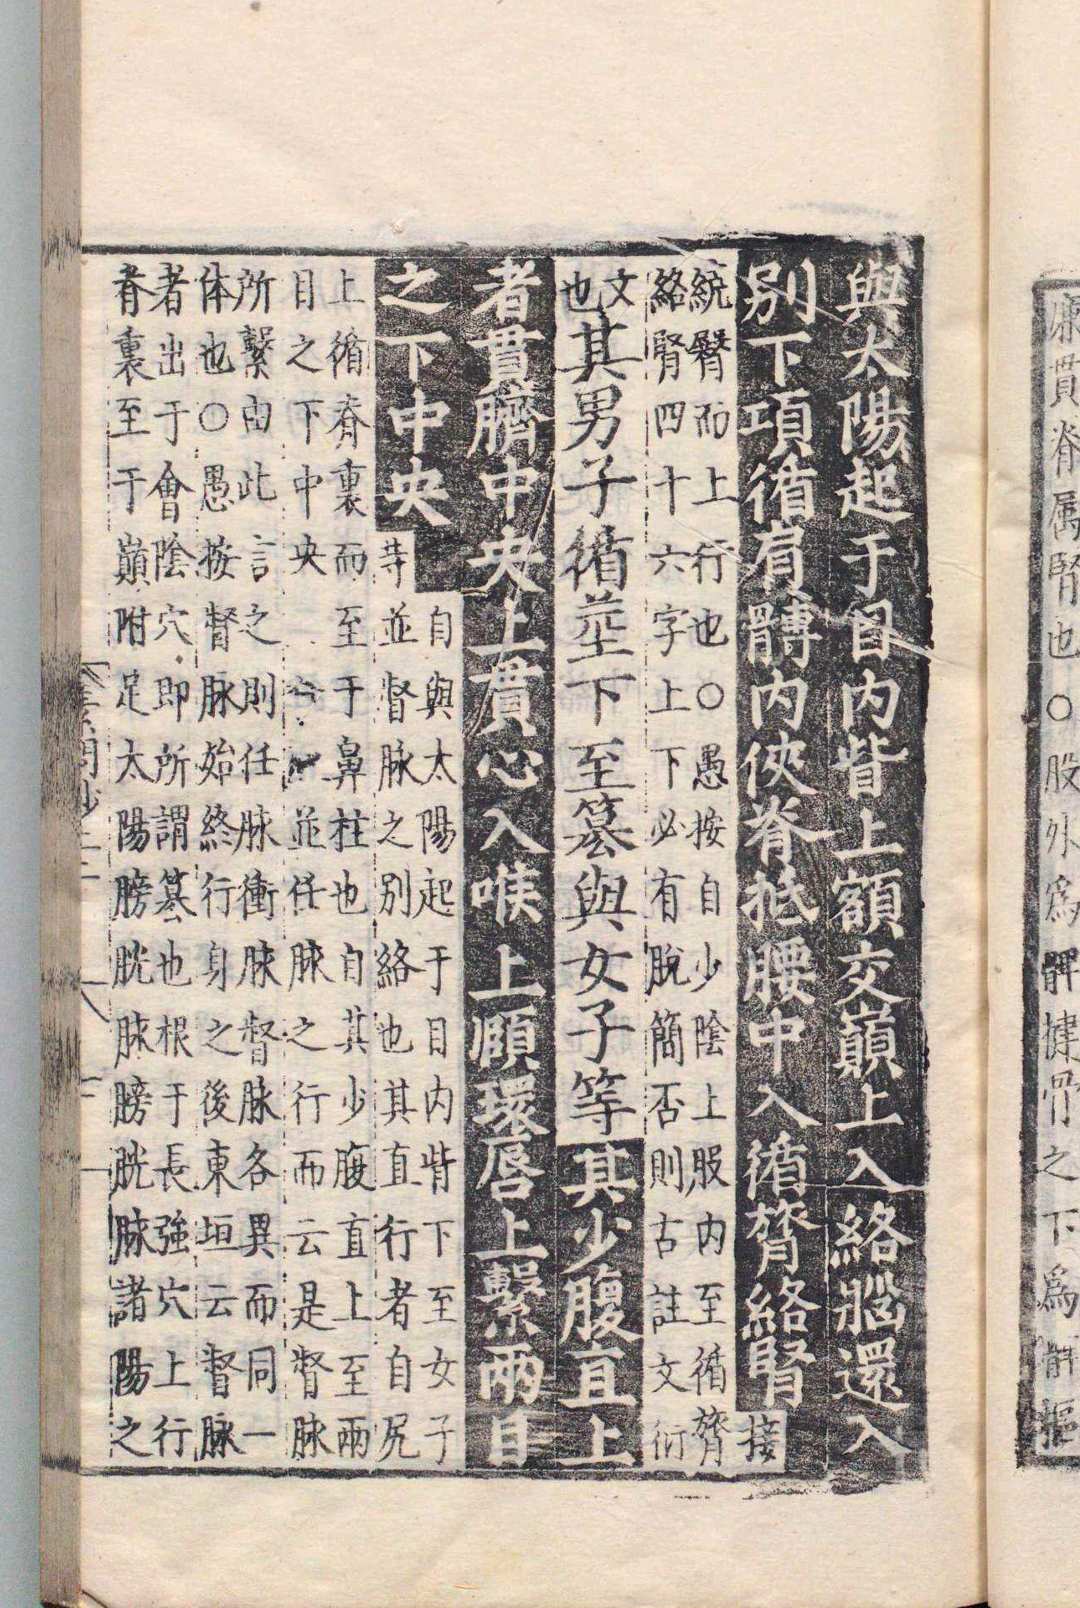 廉貫脊属腎也○股外為髀揵骨之下為髀樞
與太陽起于目内眥上額交巔上入絡腦還入
別下項循肩髆内俠脊抵腰中入循膂絡腎接
統臀而上行也○愚按自少陰上股内至循膂
絡腎四十六字上下必有脫簡否則古註文衍
文也其男子循莖下至篡與女子等其少腹直上
者貫臍中央上貫心入喉上頤環唇上繫兩目
之下中央自與太陽起于目内眥下至女子
等並督脉之别絡也其直行者自尻
上循脊裏而至于鼻柱也自其少腹直上至兩
目之下中央並任脉之行而云是督脉
所繫由此言之則任脉衝脉督脉各異而同一
体也○愚按督脉始終行身之後東垣云督脉
者出于會陰穴即所謂篡也根于長強穴上行
脊裏至于巔附足太陽膀胱脉膀胱脉諸陽之
素問抄上二